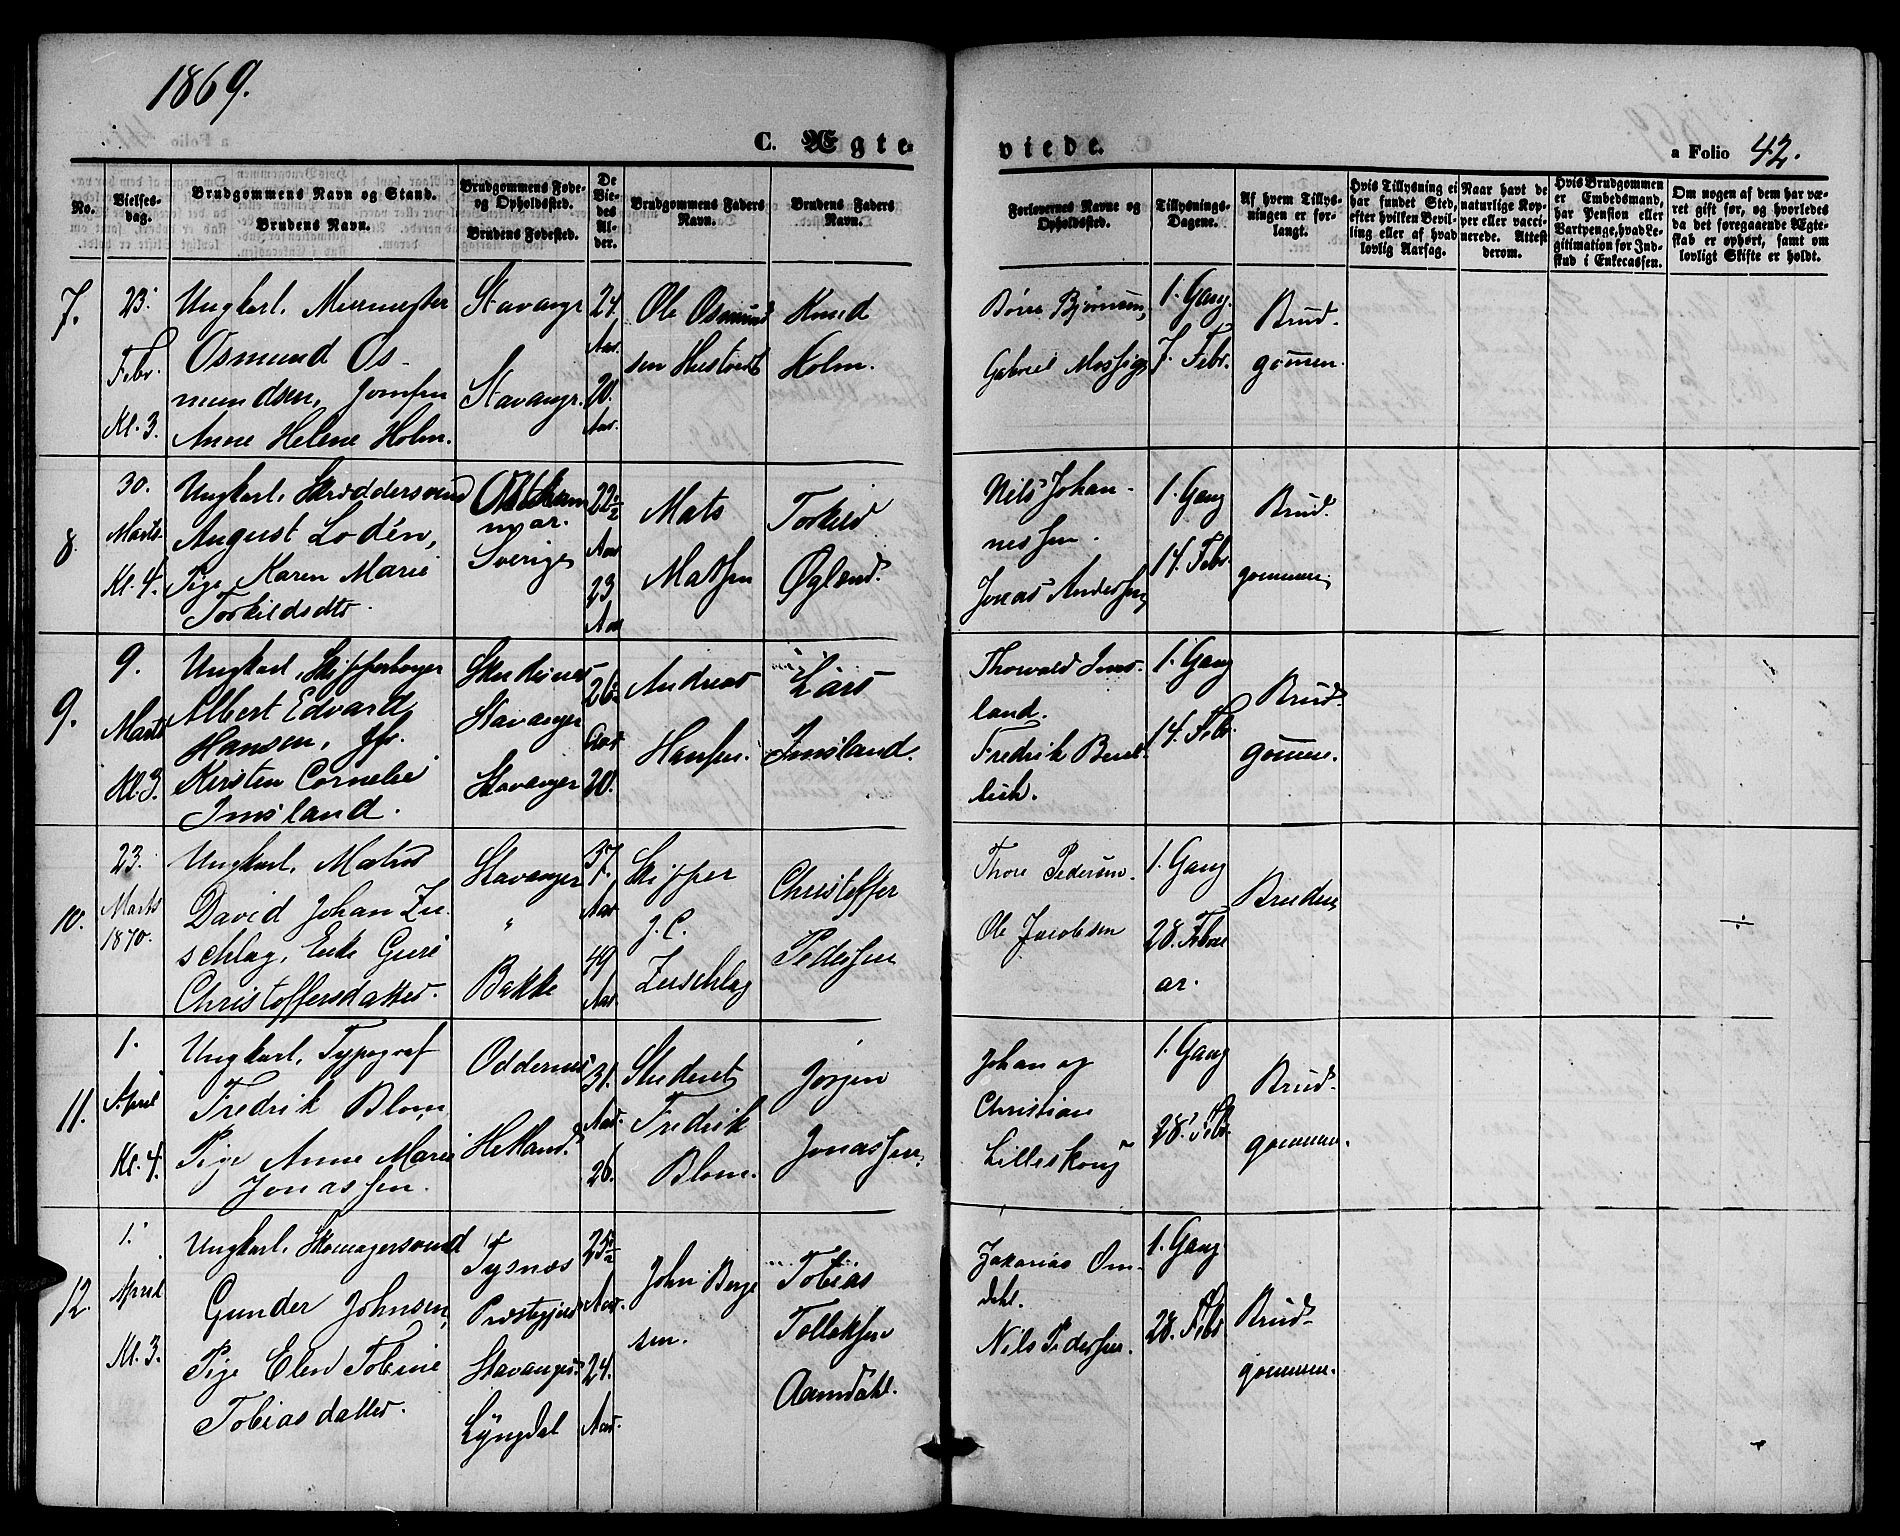 1869.
C. Ægte
viede.
a Folio 42.
No.
Vielses-
dag.
Brudgommens Navn og Stand.
Brudens Navn.
Brudgommens Føde-
og Opholdssted.
Brudens Fødested.
De
Vie-
des
Al-
der.
Brudgommens Faders
Navn.
Brudens Faders
Navn.
Forlovernes Navne og
Opholdssted.
Tillysnings-
Dagene.
Af hvem Tillys-
ningen er for-
langt.
Hvis Tillysning ei
har fundet Sted,
efter hvilken Bevil-
ling eller af hvad
lovlig Aarsag.
Naar havt de
naturlige Kop-
per eller vacci-
nerede. Attest
derom.
Hvis Brudgommen
er Embedsmand,
har Pension eller
Vartpenge, hvad Le-
gitimation for Ind-
skud i Enkecassen.
Om nogen af dem har væ-
ret gift før, og hvorledes
da det foregaaende Ægte-
skab er ophørt, samt om
lovligt Skifte er holdt.
7.
23.
Febr.
Kl. 3.
Ungkarl, Murmester
Osmund Os-
mundsen, Jomfru
Anne Helene Holm.
Stavangr
Stavangr.
24
Aar.
20.
Aar.
Ole Osmund
sen Hustvedt
Knud
Holm.
Børre Bjørnsen,
Gabriel
1. Gang.
7. Febr.
Brud-
gommen.
8.
30.
Marts.
Kl. 4.
Ungkarl, Skræddersvend
August Lodén,
Pige Karen Marie
Torkildsdtr.
mar.
Sverige
22½
Aar
23
Aar
Mats
Matsen
Torkild
Øglend.
Nils Johan-
nessen.
Jonas Anderssen
1. Gang
14. Febr.
Brud-
gommen,
9.
9.
Marts
Kl. 3.
Ungkarl, Skipperborger
Albert Edvard
Hansen, Jfr.
Kirsten Cornelie
Imsland.
Skudenes
Stavanger
Stavanger
26
Aar
20.
Andreas
Hansen.
Lars
Imsland.
Thorvald Ims-
land.
Fredrik
1. Gang
14. Febr.
Brud-
gommen.
10.
23.
Marts
1870.
Ungkarl, Matros
David Johan Zu-
schlag, Enke Guri
Christoffersdatter.
Stavanger
"
Bakke
37.
Aar
49
Aar
Skipper
J. C.
Zuschlag
Christoffer
Pedersen
Thore Pedersen.
Ole Jacobsen
1. Gang
28. Febru
ar.
Bruden
÷
11.
1.
April
Kl. 4.
Ungkarl, Typograf
Fredrik Blom,
Pige Anne Marie
Jonassen.
Oddernes
Hetland.
31.
Aar.
26.
Student
Fredrik
Blom.
Jørgen
Jonassen.
Johan og
Christian
Lilleskong
1. Gang
28. Febr.
Brud-
gommen.
12.
1.
April
Kl. 3.
Ungkarl, Skomagersvend
Gunder Johnsen,
Pige Elen Tobine
Tobiasdatter.
Tysnæs
Præstegjeld
Stavanger
Lyngdal
25½
Aar.
24.
Aar.
John Berge
sen.
Tobias
Tollaksen
Aamdahl.
Zakarias Om-
dahl.
Nils Pedersen.
1. Gang
28. Febr
Brud-
gommen.